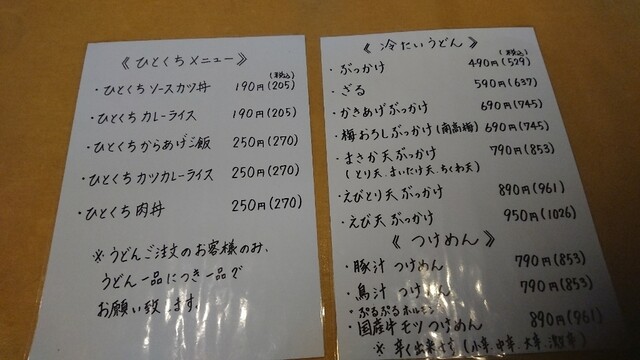 《ひとくちメニュー》
(税込)
・ひとくち ソースカツ丼 190円(205)
・ひとくち カレーライス 190円(205)
・ひとくち からあげご飯 250円(270)
・ひとくち カツカレーライス 250円(270)
・ひとくち 肉丼 250円(270)
※うどんご注文のお客様のみ、
うどん一品につき一品で
お願い致します。
《冷たいうどん》
(税込)
・ぶっかけ 490円(529)
・ざる 590円(637)
・かきあげぶっかけ 690円(745)
・梅おろしぶっかけ(南高梅) 690円(745)
・まさか天ぶっかけ 790円(853)
(とり天、まいたけ天、ちくわ天)
・えびとり天ぶっかけ 890円(961)
・えび天ぶっかけ 950円(1026)
《つけめん》
・豚汁 つけめん 790円(853)
・鳥汁 つけめん 790円(853)
*ぷるぷるホルモン
・国産牛モツつけめん 890円(961)
※辛く出来ます(小辛、中辛、大辛、激辛)